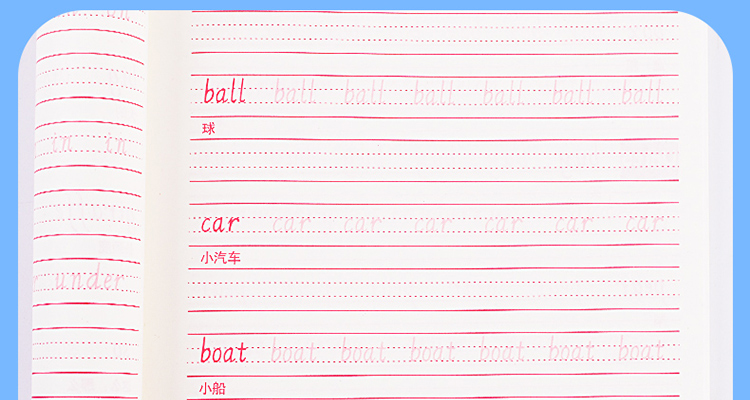 in in
under
ball ball ball ball ball ball ball
球
car car car car car car car
小汽车
boat boat boat boat boat boat boat
小船